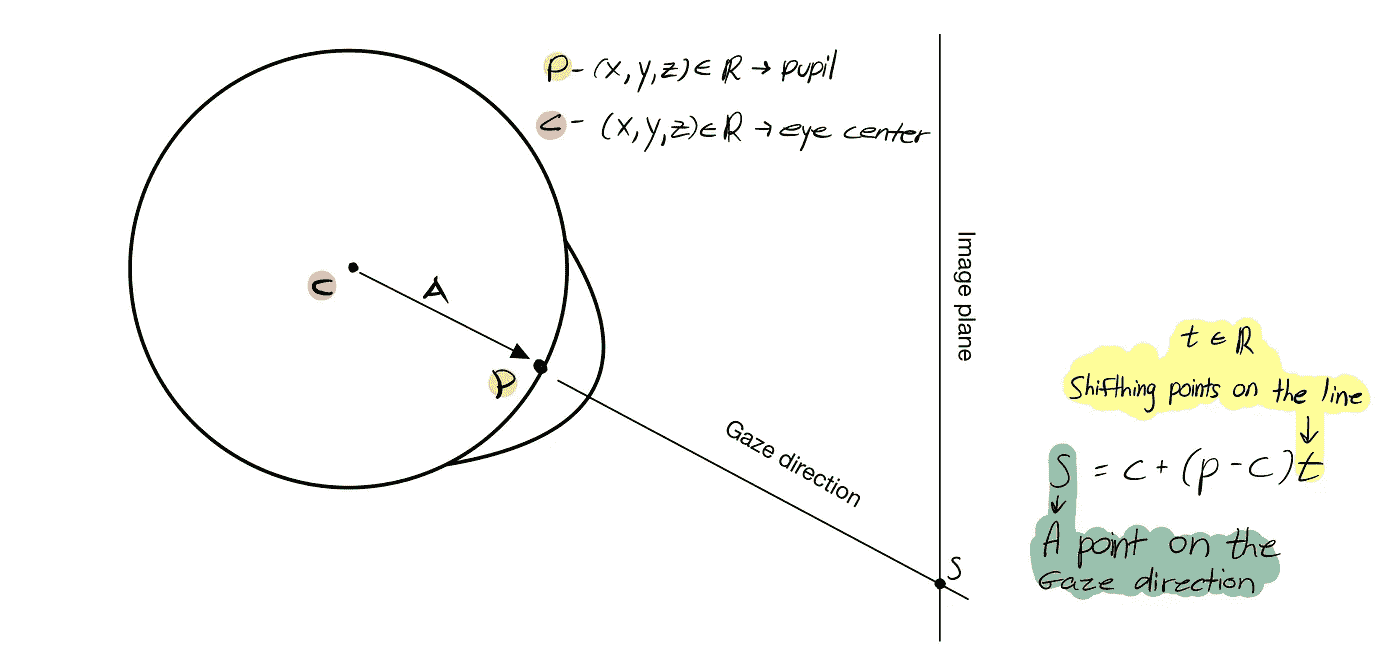 P - (x, y, z) ∈ ℝ → pupil
C - (x, y, z) ∈ ℝ → eye center
C
A
P
Gaze direction
Image plane
S
t ∈ ℝ
Shifthing points on the line
↓
S = C + (P - C)t
↓
A point on the
Gaze direction